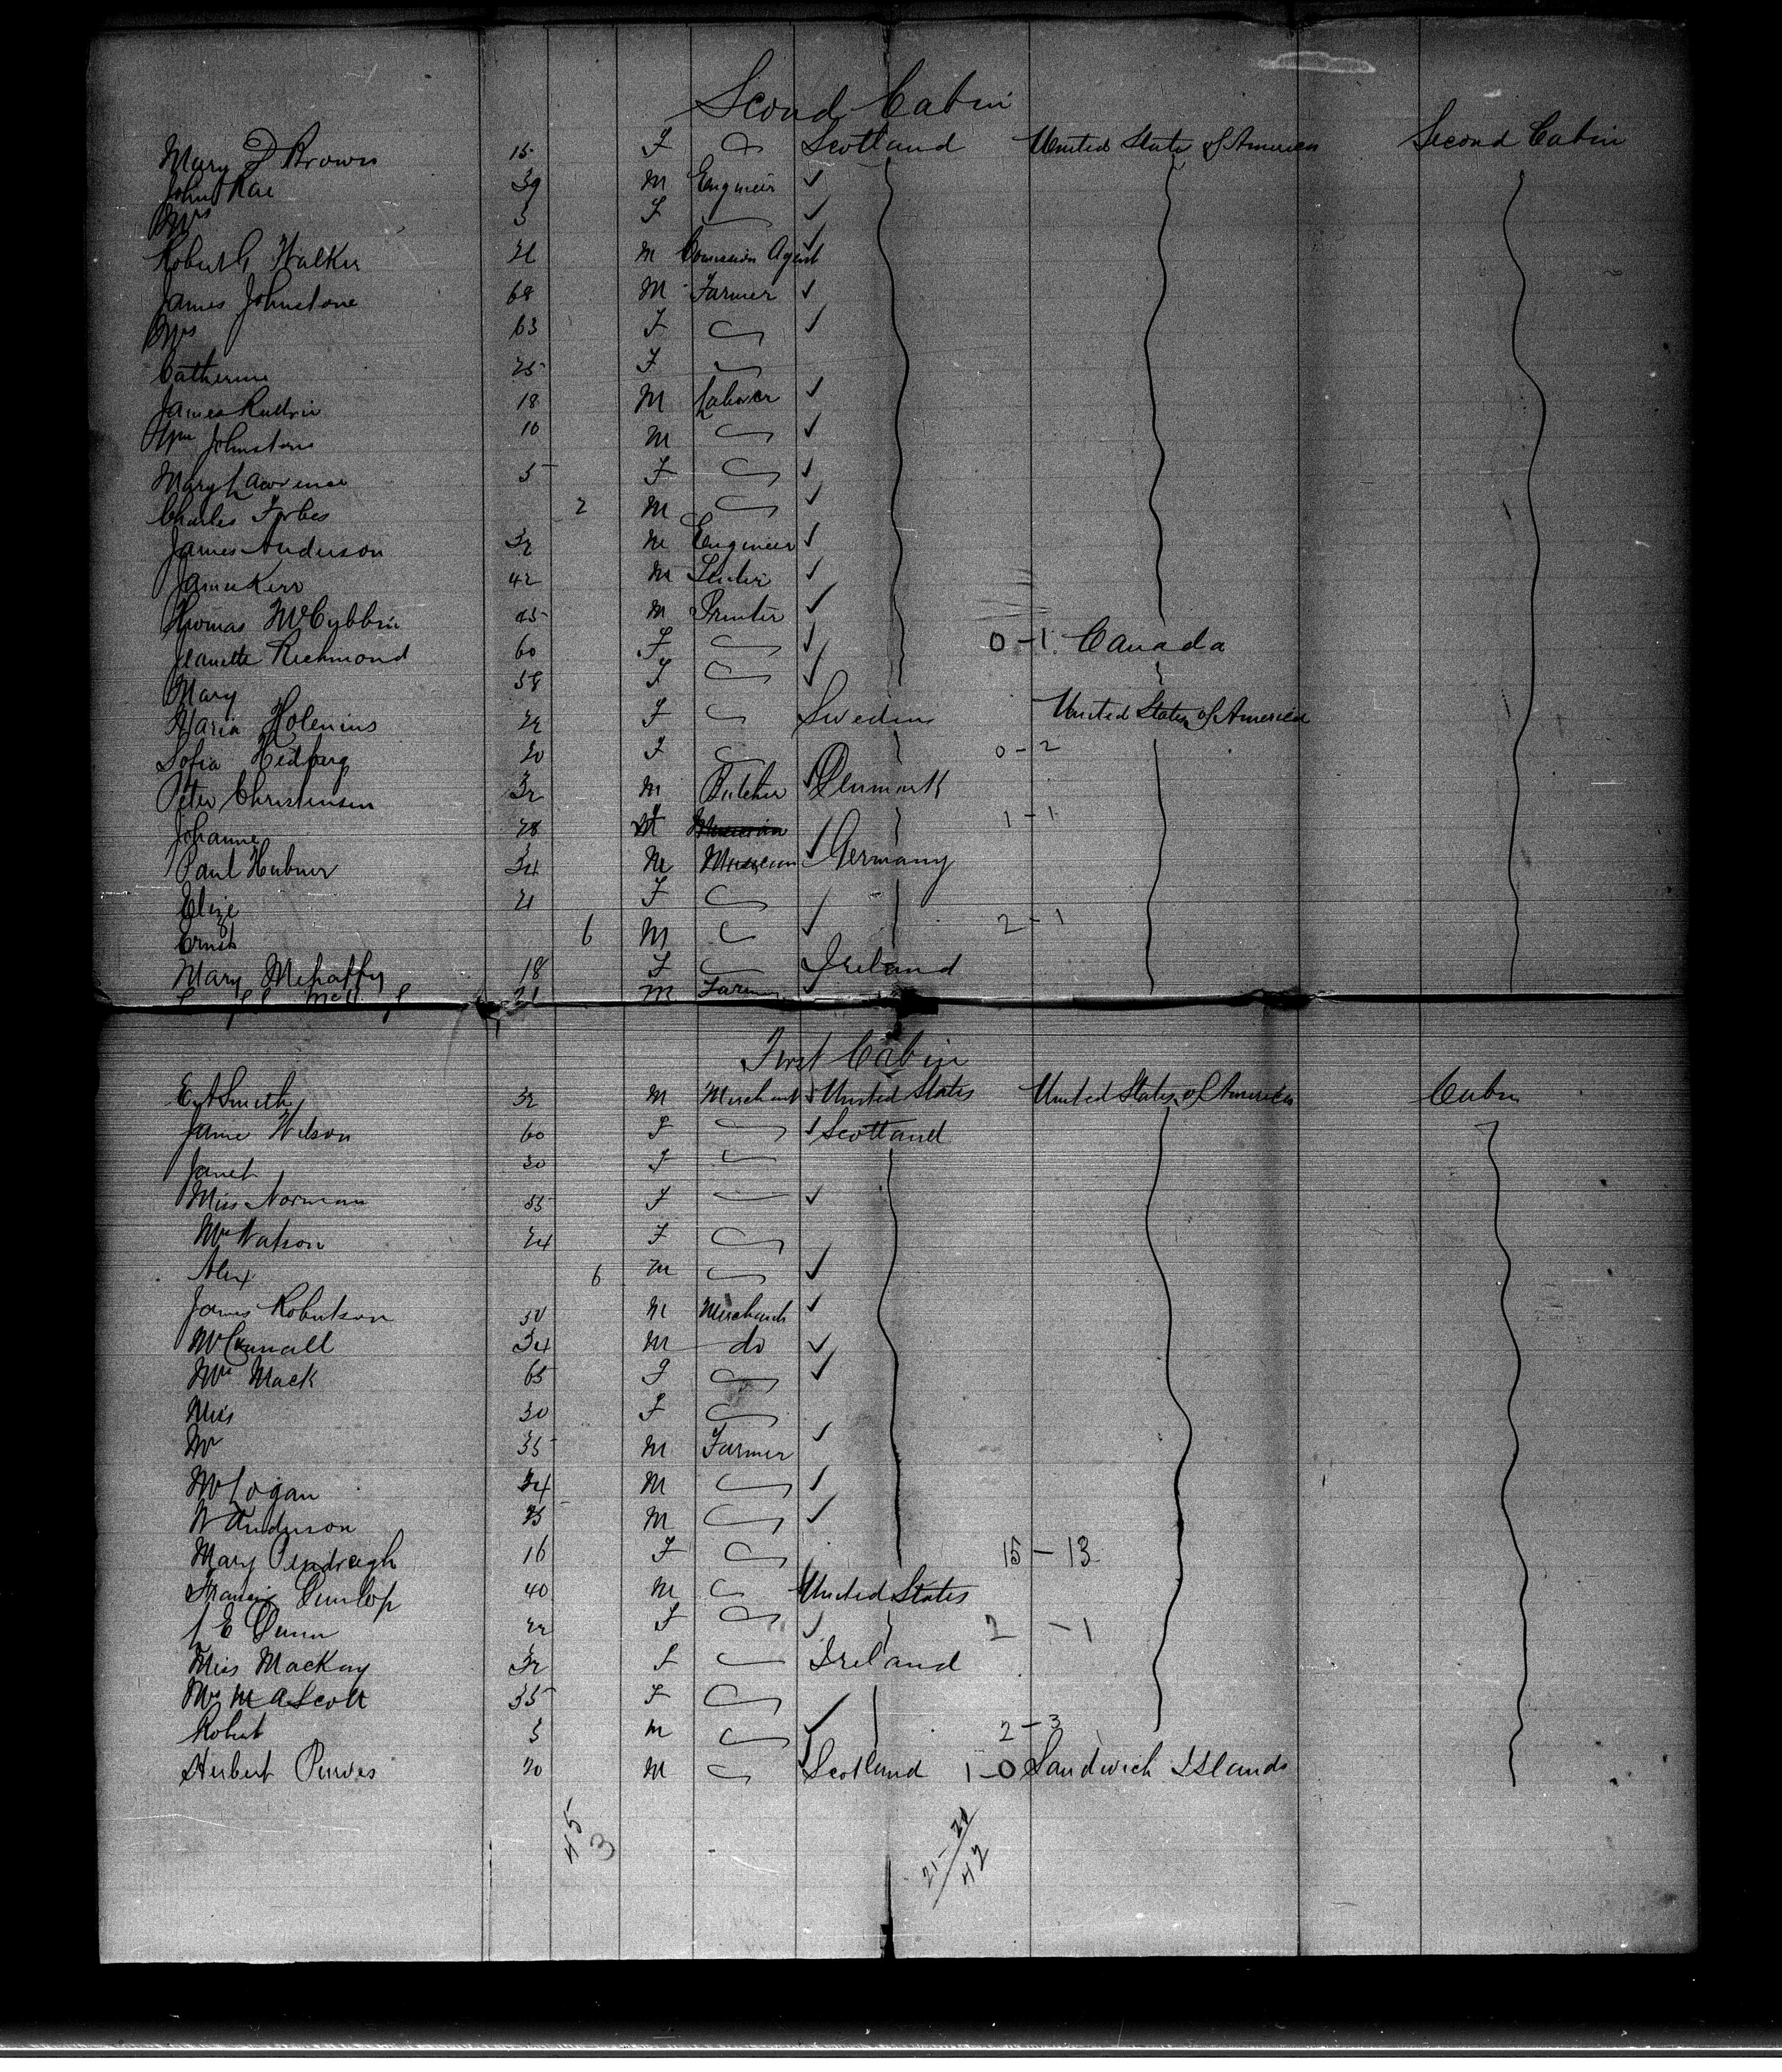 Second Cabin
Mary D Brown 15 F Scotland United States of America Second Cabin
John Rae 39 M Engineer
Mrs 3 F
Robert G Walker 21 M Comission Agent
James Johnstone 68 M Farmer
Mrs 63 F
Catherine 25 F
James 18 M Labourer
Wm Johnstone 10 M
Mary Lawrence 5 F
Charles Forbes 2 M
James Anderson 32 M Engineer
James Kerr 42 M
Thomas McCybbin 45 M Printer
Jeanette Richmond 60 F 0-1 Canada
Mary 58 F
Maria Holenius 22 F Sweden United States of America
Sofia Hedberg 20 F 0-2
Peter Christensen 32 M Butcher Denmark
Johanne 28 F 1-1
Paul Hubner 34 M Musician Germany
Elize 21 F
Ernst 6 M 2-1
Mary Mehaffy 18 F Ireland
21 M Farmer
First Cabin
E A Smith 32 M Merchant United States United States of America Cabin
Jane Wilson 60 F Scotland
Janet 30 F
Miss Norman 35 F
Mrs Watson 24 F
Alex 6 M
James Robertson 50 M Merchant
Mr 34 M do
Mrs Mack 65 F
Miss 30 F
Mr 35 M Farmer
Mr Logan 34 M
W Anderson 35 M
Mary 16 F 15-13
Francis Dunlop 40 M United States
J E Dunn 22 F 2-1
Miss Mackay 32 F Ireland
Mrs M A Scott 35 F
Robert 3 M 2-3
Herbert Purves 20 M Scotland 1-0 Sandwich Islands
45
3
21-21
42